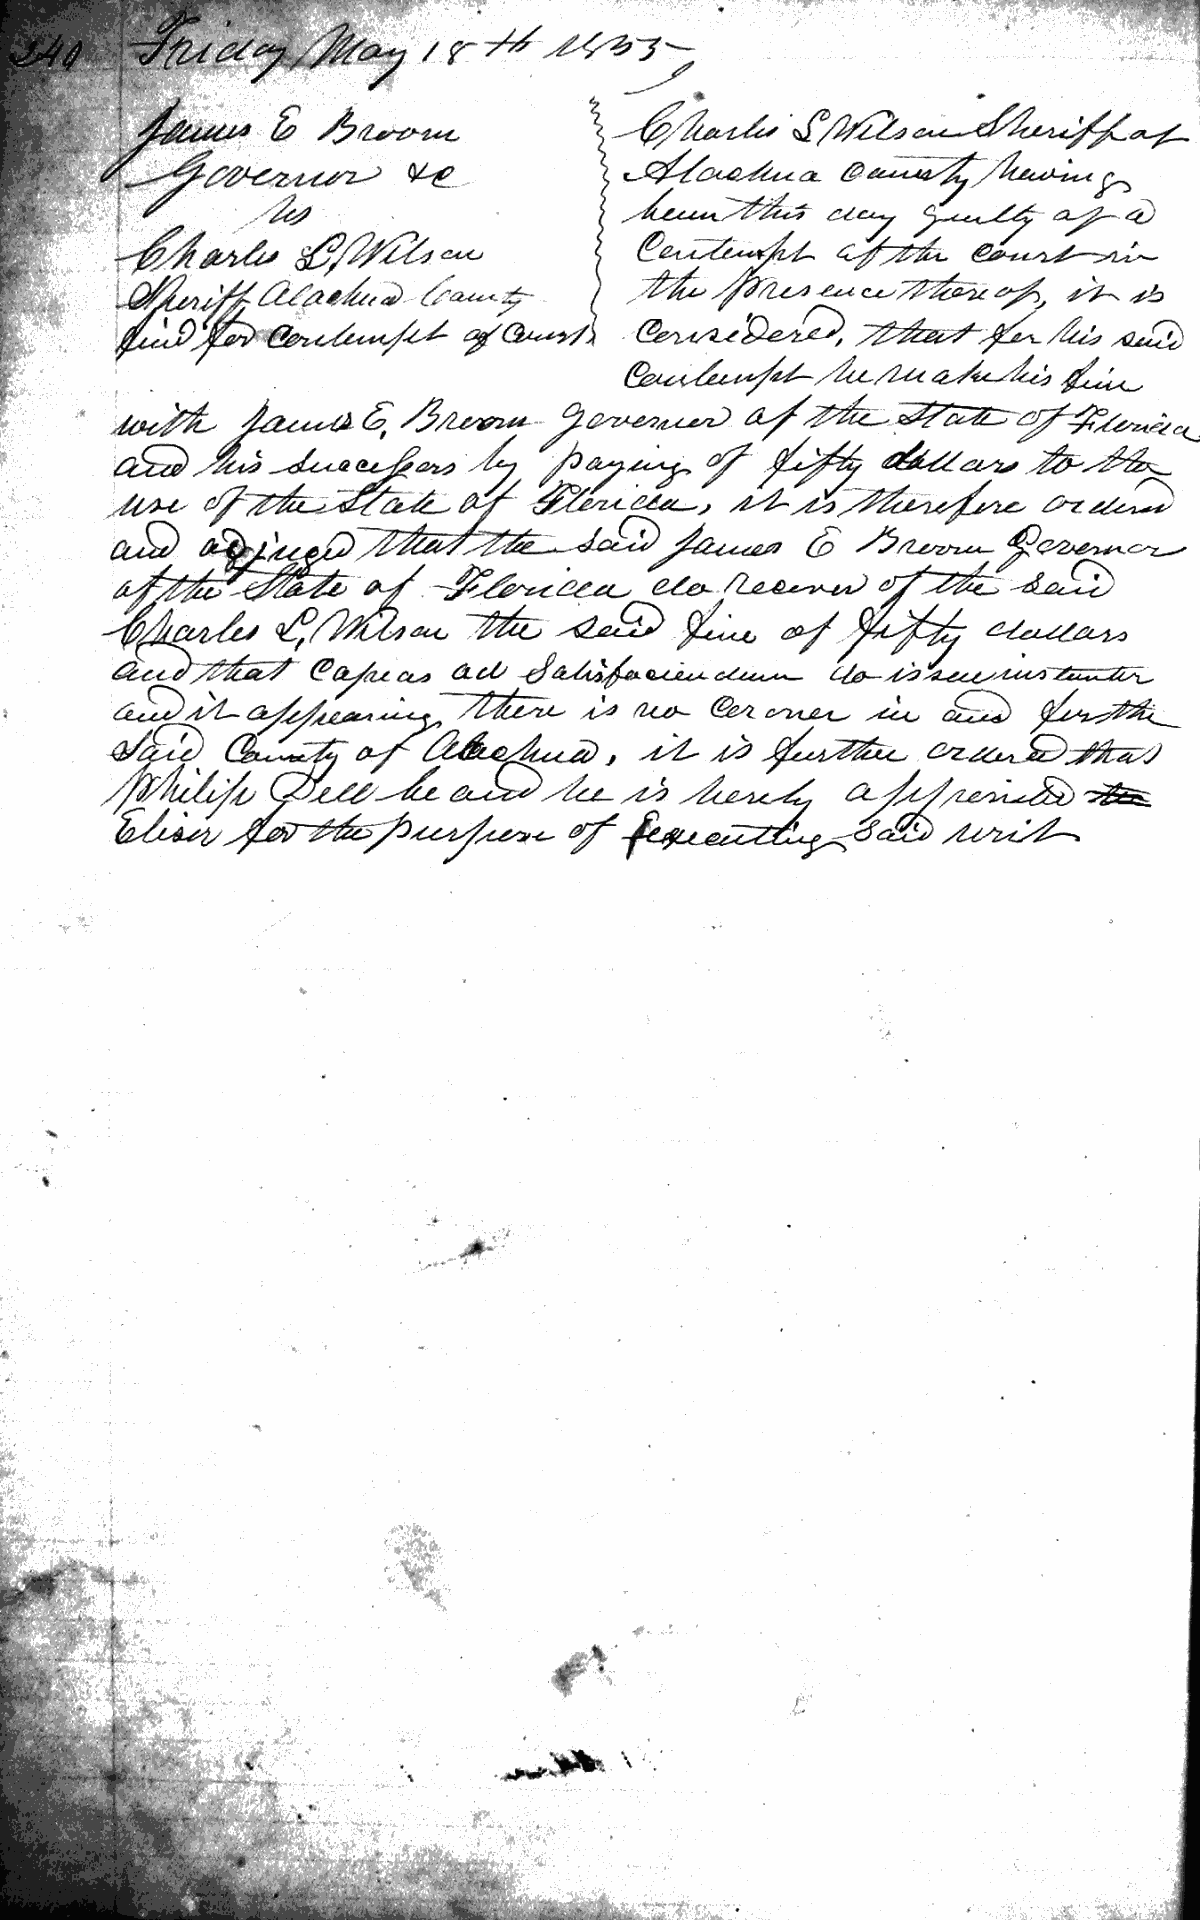 240 Friday May 18th 1855
James E Broom
Governor &c
vs
Charles L. Wilson
Sheriff Alachua County
fined for contempt of Court
Charles L Wilson Sheriff of
Alachua County having
been this day guilty of a
Contempt of the court in
the presence thereof, it is
considered, that for his said
contempt he make his fine
with James E. Broom Governor of the State of Florida
and his successors by paying of fifty dollars to the
use of the State of Florida, it is therefore ordered
and adjuged that the said James E Broom Governor
of the State of Florida do recover of the said
Charles L. Wilson the said fine of fifty dollars
and that Capias ad Satisfaciendum do issue instanter
and it appearing there is no Coroner in and for the
said County of Alachua, it is further ordered that
Philip Dell be and he is hereby appointed
Elisor for the purpose of executting said writ